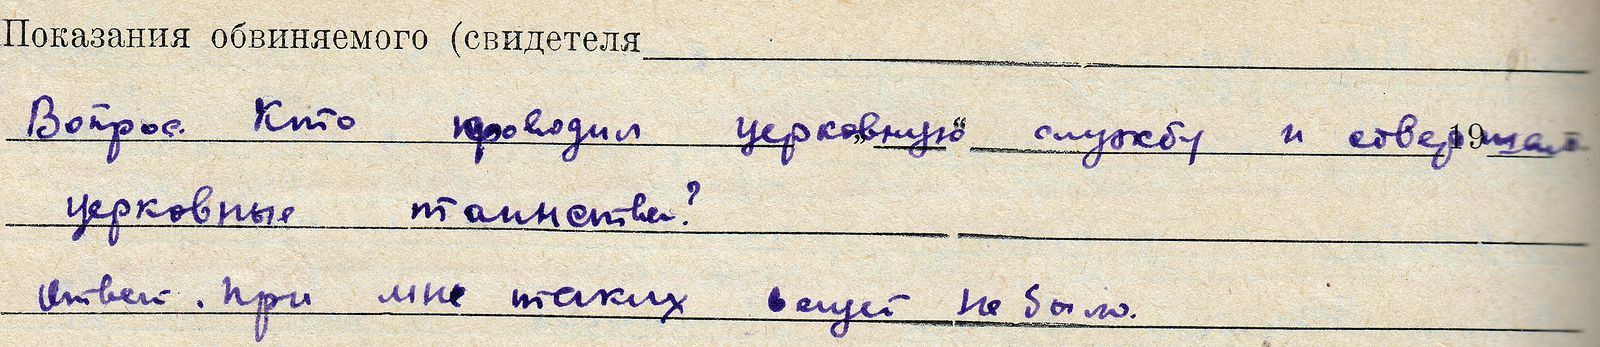 Показания обвиняемого (свидетеля
Вопрос. Кто проводил церковную службу и совершал „ “ 19
церковные таинства?
Ответ. При мне таких вещей не было.